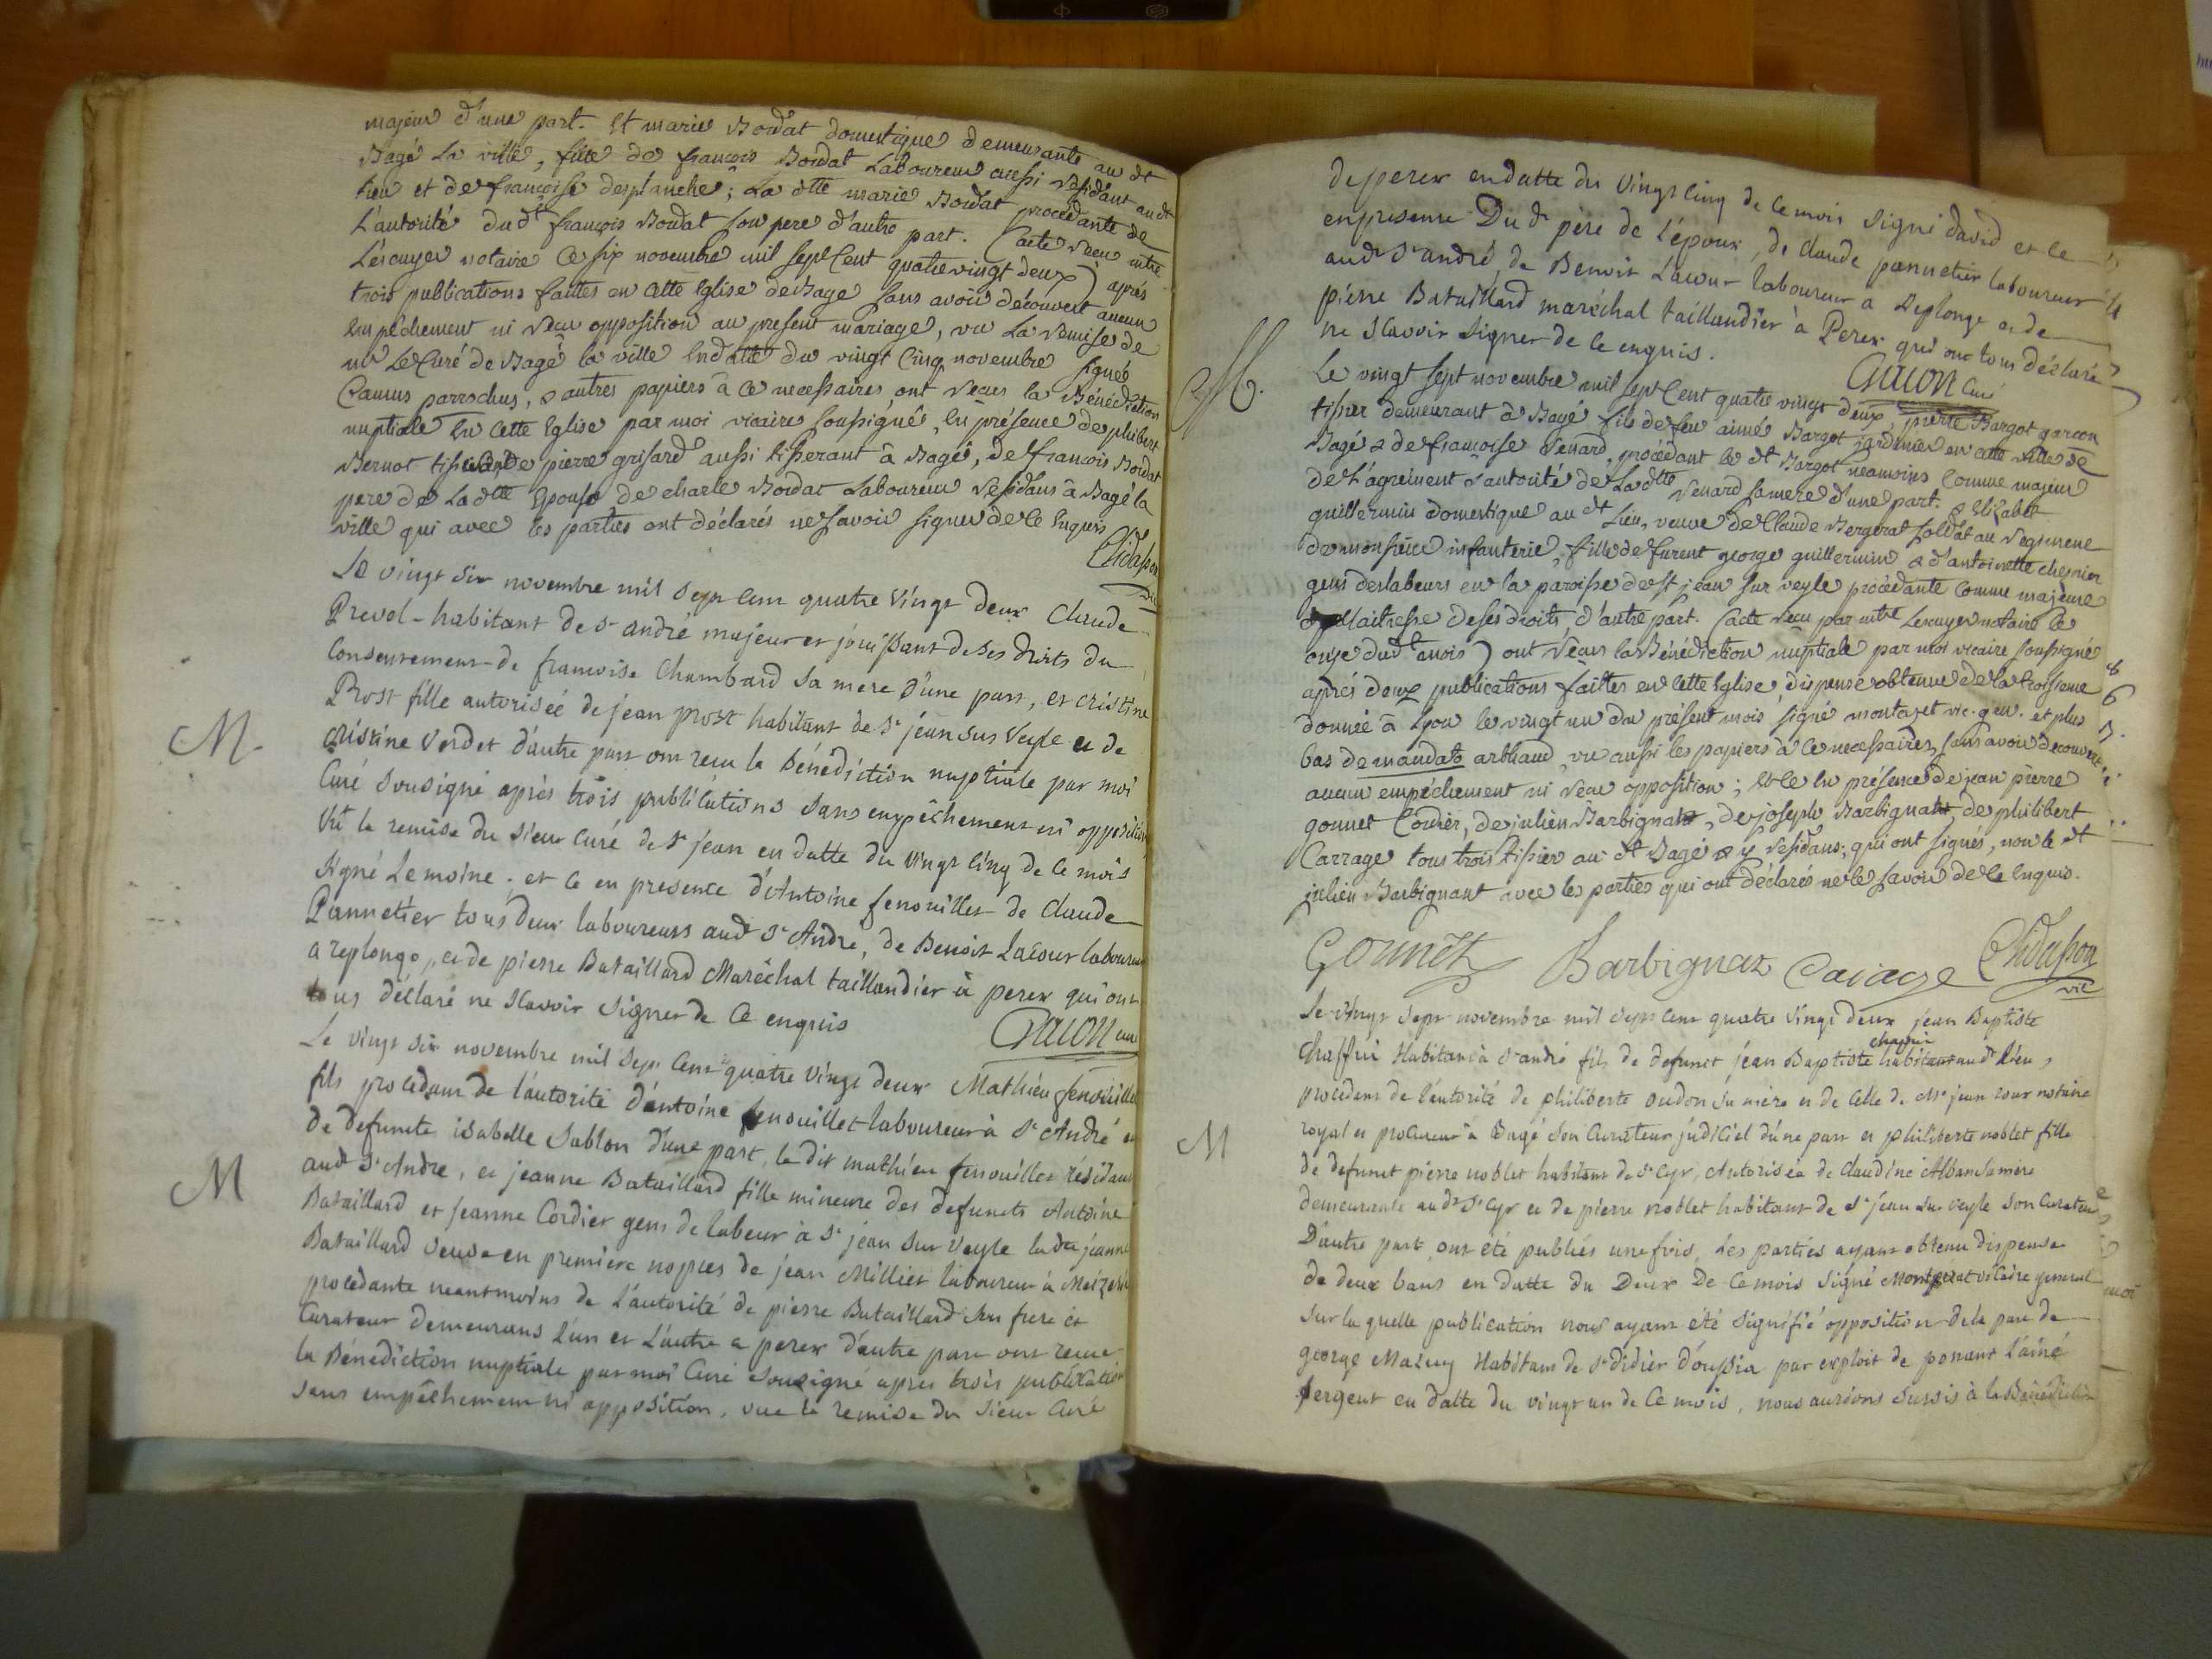 majeur d'une part. Et marie Bordat domestique demeurante au dt
Bagé La ville, fille de françois Bordat Laboureur aussi résidant audt
lieu et de françoise desplanche; La dtte marie Bordat procedante de
L'autorité dudt françois Bordat son pere d'autre part. (acte recu mtre
Lescuyer notaire le six novembre mil sept Cent quatrevingt deux) aprés
trois publications faittes en cette Eglise de Bagé sans avoir découvert aucun
Empéchement ni recu opposition au present mariage, vu La remise de
mr Le Curé de Bagé la ville En datte du vingt Cinq novembre signée
Camus parrochus, & autres papiers à ce necessaires ont recus la Bénédiction
nuptiale En cette Eglise par moi vicaire soussigné, En présence de philibert
Bernot tisserant de pierre grisard aussi tisserant à Bagé, de francois Bordat
pere de La dtte Epouse de charle Bordat Laboureur résidans à Bagé la
ville qui avec les parties ont déclarés ne savoir signer de ce Enquis
Chidasson
Le vingt six novembre mil sept cent quatre vingt deux Claude
Prevol habitant de st andré majeur et jouissant de ses droits du
Consentement de francoise Chambard sa mere d'une part, et cristine
Prost fille autorisée de jean prost habitant de st jean sus Veyle et de
M.
cristine Verdet d'autre part ont recu la bénédiction nuptiale par moi
Curé Sousigné après trois publications sans empêchement ni opposition
Vu la remise du sieur Curé de st jean en datte du vingt cinq de ce mois
signé Lemoine; et ce en presence d'Antoine fenouillet de Claude
Pannetier tous deux laboureurs audt st André, de Benoit Lacour laboureur
a replonge, et de pierre Bataillard Maréchal taillandier à perex qui ont
tous déclaré ne scavoir signer de ce enquis
Gacon curé
Le vingt six novembre mil sept Cent quatre vingt deux Mathieu fenouillet
fils procedant de l'autorité d'antoine fenouillet laboureur à st André et
de defuncte isabelle Sablon d'une part, le dit mathieu fenouillet résidant
M
audt st Andre, et jeanne Bataillard fille mineure des defuncts Antoine
Bataillard et jeanne Cordier gens de labeur à st jean sur Veyle ladte jeanne
Bataillard veuve en premiere nopces de jean Millier laboureur à Meizeria
procedante neantmoins de l'autorité de pierre Bataillard son frere et
Curateur demeurans l'un et l'autre a perex d'autre part ont recue
la Bénédiction nuptiale par moi Curé Sousigné apres trois publication
sans empêchement ni opposition, vue la remise du sieur Curé
de perex en datte du vingt cinq de ce mois signé david et ce
en presence Du dt père de l'époux, de claude pannetier laboureur
audt st andré, de Benoit Lacour laboureur a Replonge et de
pierre Bataillard maréchal taillandier à Perex qui ont tous déclaré
ne scavoir signer de ce enquis.
Gacon Curé
M.
Le vingt sept novembre mil sept Cent quatre vingt deux, pierre Bargot garcon
tissier demeurant à Bagé fils de feu aimé Bargot jardinier en cette ville de
Bagé & de françoise Venard, procédant le dt Bargot neamoins Comme majeur
de L'agrément & autorité de La dtte Venard sa mere d'une part. & Elizabet
guillermin domestique au dt Lieu, veuve de Claude Bergerat soldat au regiment
de infanterie, fille de furent george guillermin & d'antoinette chesnier
gens deslabeurs en la paroisse de st jean sur veyle procédante Comme majeure
Maitresse de ses droits d'autre part. (acte recu par mtre Lescuyer notaire le
onze dudt mois) ont recus la Bénédiction nuptiale par moi vicaire soussigné
aprés deux publications faittes en cette Eglise, dispense obtenue de la troisieme
donnée à Lyon le vingt un du présent mois signé montazet vic. gen. et plus
bas de mandato arthaud, vu aussi les papiers à ce necessaires, sans avoir decouvert
aucun empéchement ni recu opposition; Et ce En présence de jean pierre
gonnet Cordier, de julien Barbignant, de joseph Barbignant, de philibert
Carrage tous trois tissier au dt Bagé & y résidans, qui ont signés, non le dt
julien Barbignant avec les parties qui ont déclarés ne le savoir de ce Enquis.
Gounet Barbignaz Carage Chidasson
vic
Le vingt sept novembre mil sept cent quatre vingt deux jean Baptiste
Chaffrin Habitant à st andré fils de defunct jean Baptiste habitant audt lieu,
procedant de l'autorité de philiberte oudon sa mere et de celle de Me jean cour notaire
M
royal et procureur a Bagé son Curateur judiciel d'une part et philiberte noblet fille
de defunct pierre noblet habitant de st Cyr, autorisée de claudine Alban sa mere
demeurante audt st Cyr et de pierre noblet habitant de st jean sur veyle son Curateur
D'autre part, ont été publiés une fois, Les parties ayant obtenu dispense
de deux bans en datte du Deux De ce mois signé Montazet vicaire general
sur la quelle publication nous ayant été signifié opposition de la part de
george Mazuy Habitant de st didier d'oussia par exploit de ponant L'ainé
sergent en datte du vingt un de ce mois, nous aurions sursis à la Bénédiction